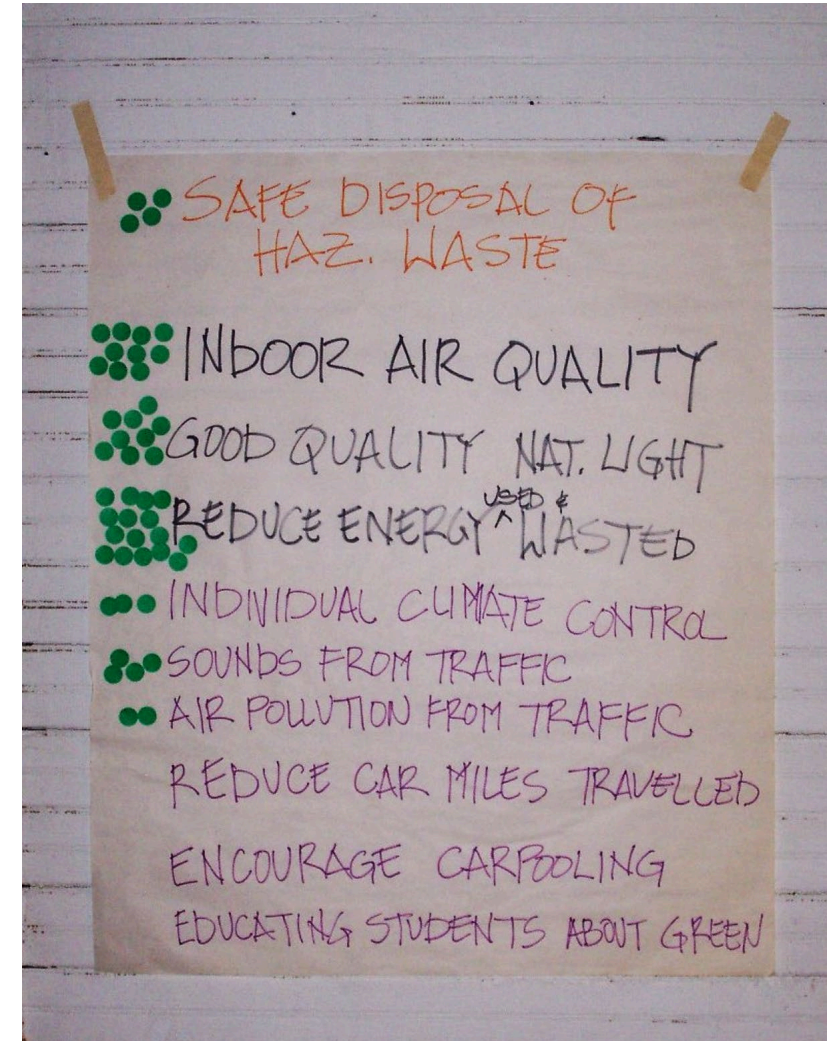 SAFE DISPOSAL OF
HAZ. WASTE
INDOOR AIR QUALITY
GOOD QUALITY NAT. LIGHT
REDUCE ENERGY ^ USED & WASTED
INDIVIDUAL CLIMATE CONTROL
SOUNDS FROM TRAFFIC
AIR POLLUTION FROM TRAFFIC
REDUCE CAR MILES TRAVELLED
ENCOURAGE CARPOOLING
EDUCATING STUDENTS ABOUT GREEN